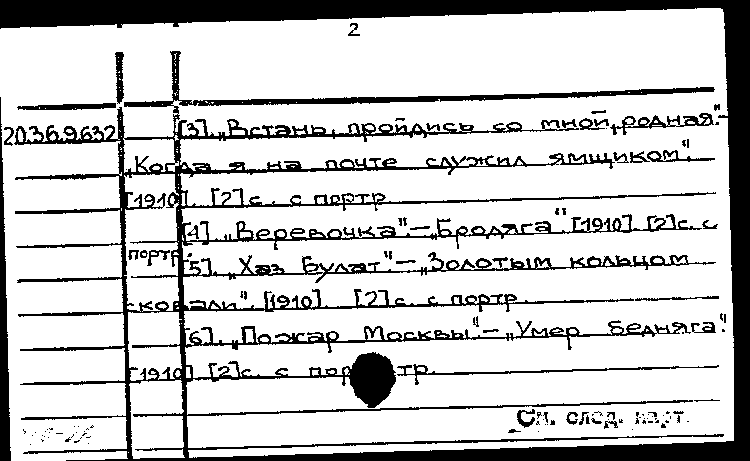 2
20.36.9.632 [3]. „Встань, пройдись со мной, родная".–
„Когда я на почте служил ямщиком".
[1910]. [2]с. с портр.
[4]. „Веревочка".–„Бродяга". [1910]. [2]с. с
портр.
[5]. „Хаз Булат".–„Золотым кольцом
сковали". [1910]. [2]с. с портр.
[6]. „Пожар Москвы".–„Умер бедняга".
[1910]. [2]с. с портр.
См. след. карт.